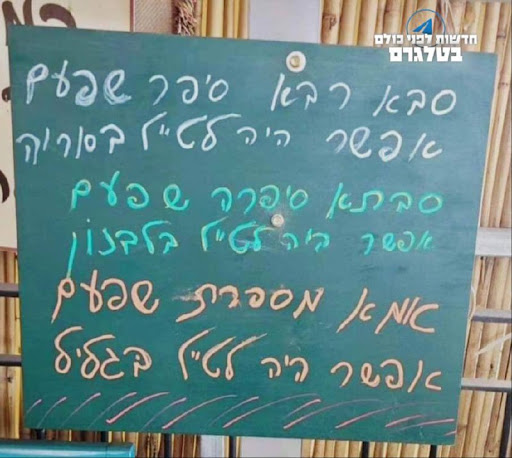 חדשות לפני כולם
בטלגרם
סבא רבא סיפר שפעם
אפשר היה לטייל בסוריה
סבתא סיפרה שפעם
אפשר היה לטייל בלבנון
אמא מספרת שפעם
אפשר היה לטייל בגליל